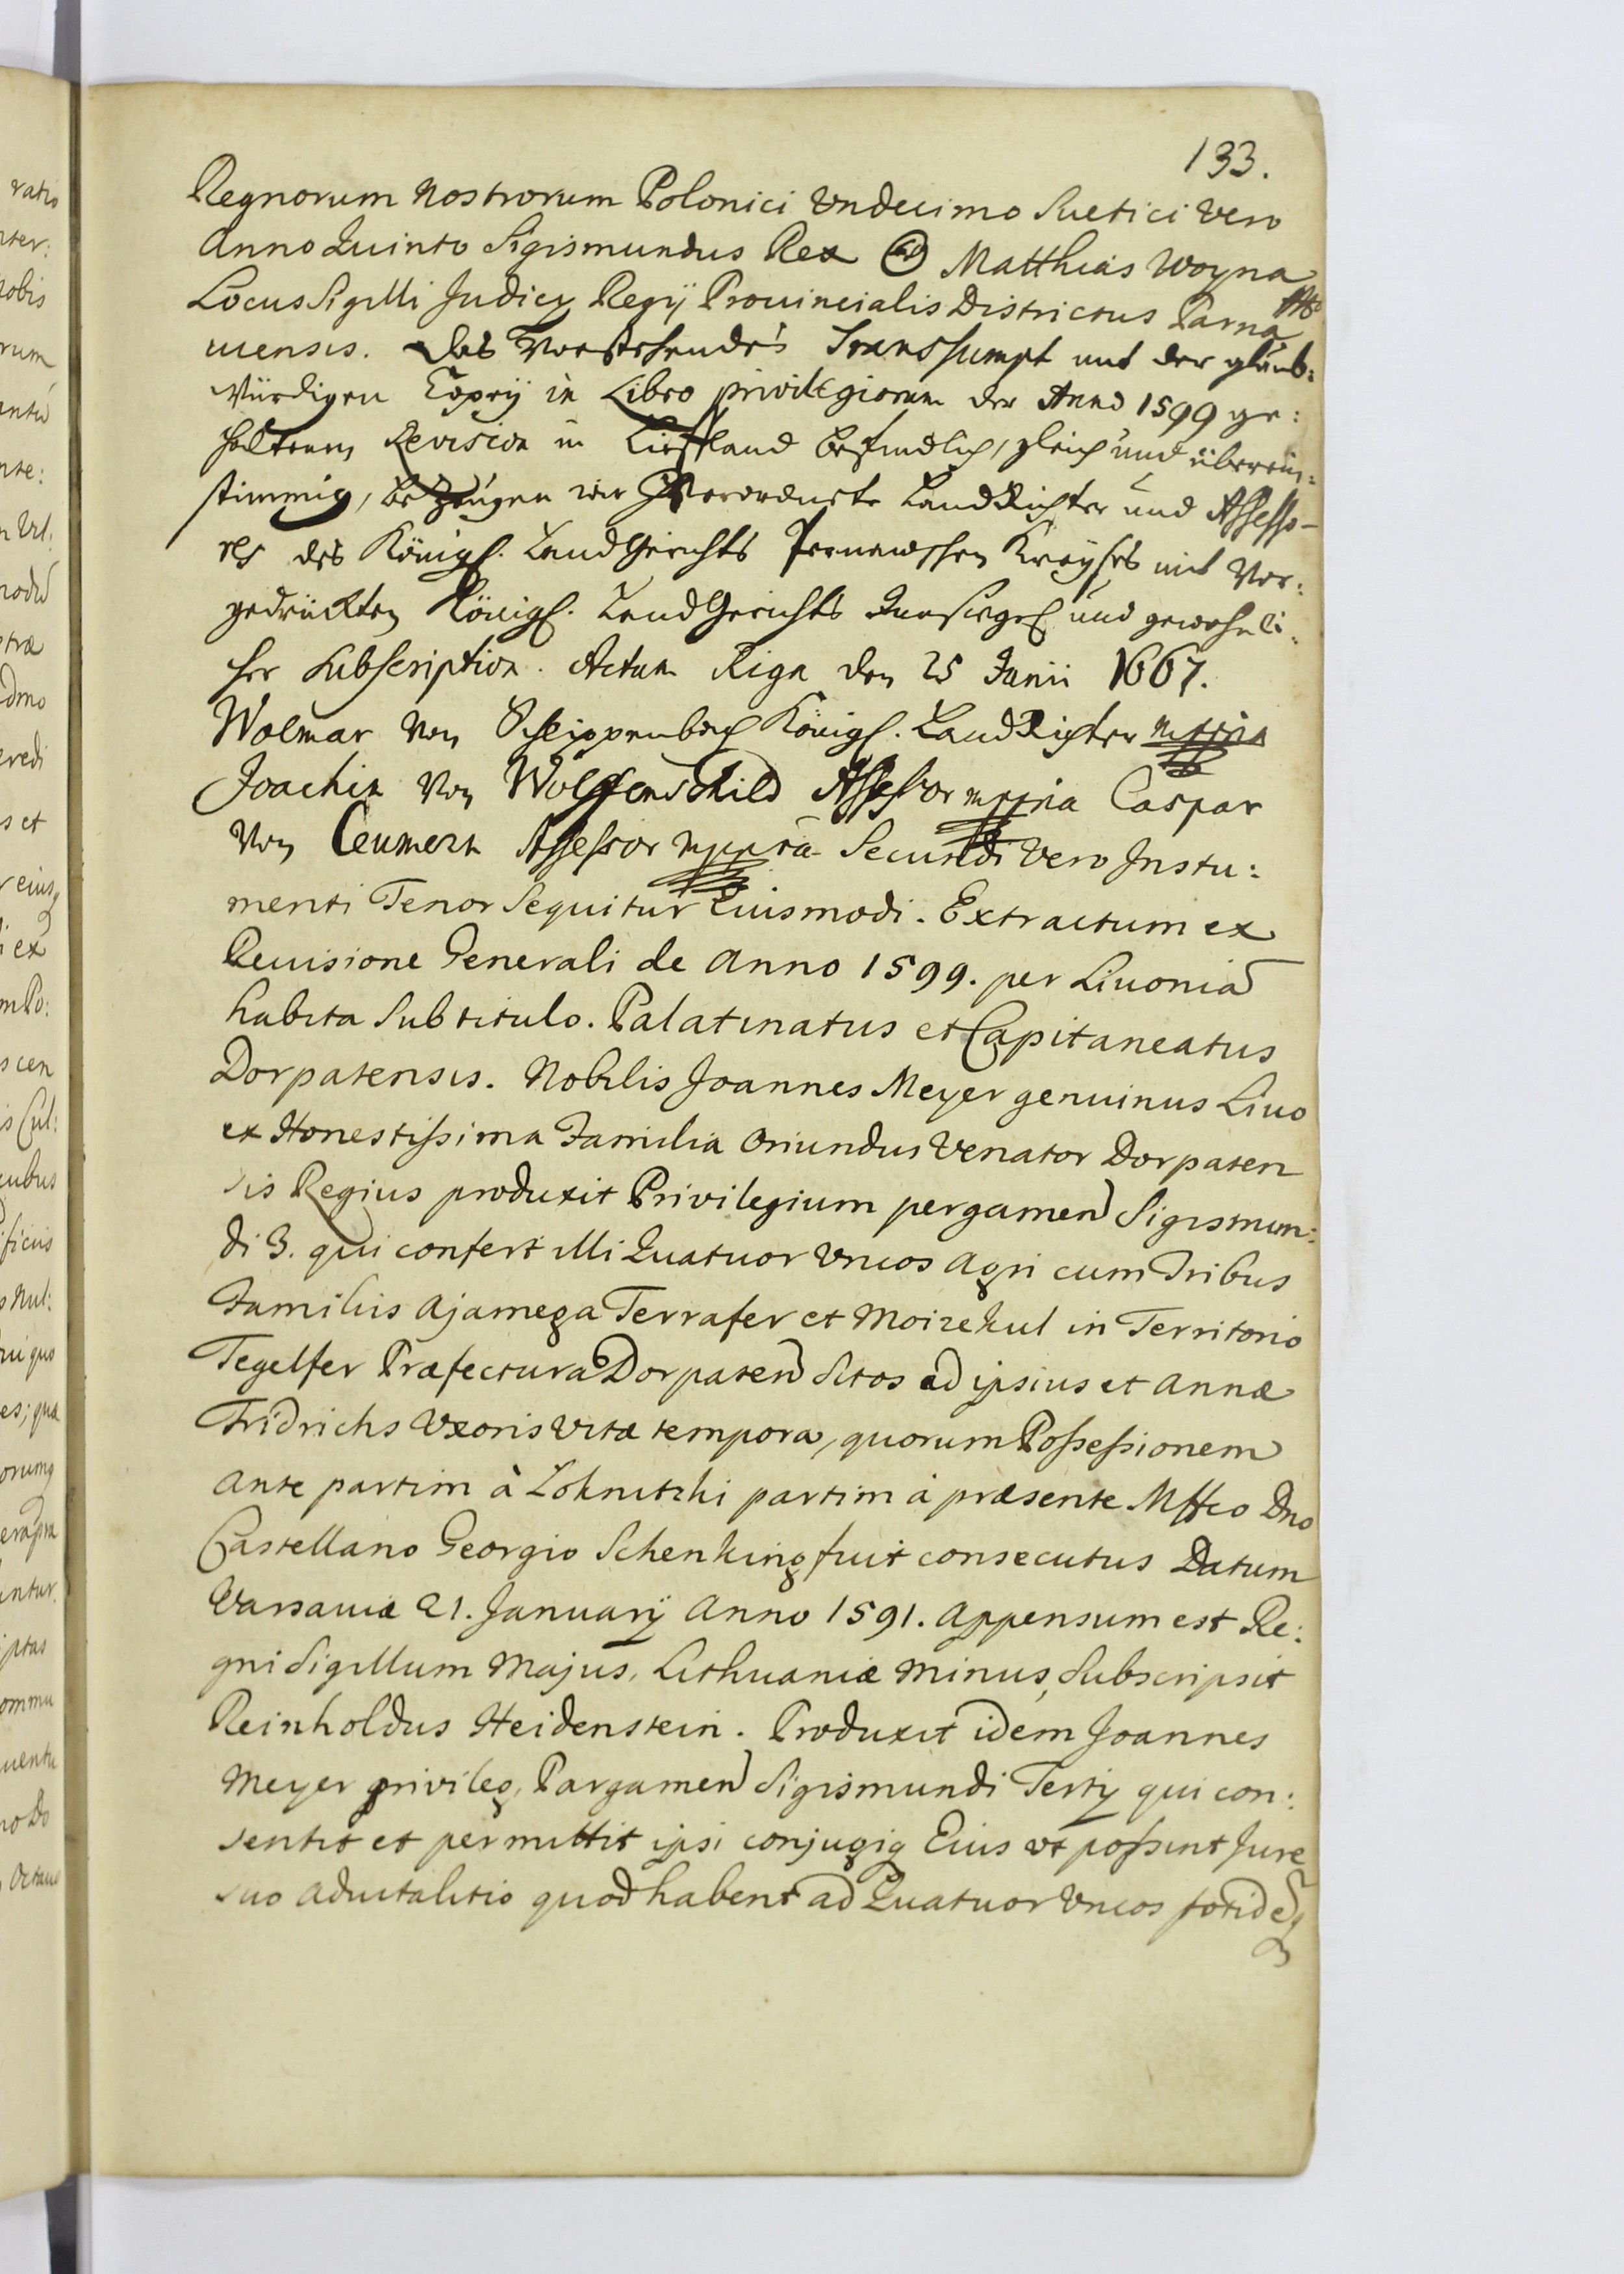 133.
Regnorum Nostrorum Polonici Vndecimo Suetici Vero
Anno Quinto Sigismundus Rex Matthias Woyna
Locus Sigilli Judicij Regij Prouincialis Districtus Parna
uensis. Das Vorstehendes Transsumpt mit der glaub:
würdigen Copeij in Libro privilegiorum der Anno 1599 ge:
haltenen Revision in Liefland befindlich, gleich und überein:
stimmig, bezeugen wir Verordnete LandRichter und Assesso-
res des Königl. LandGerichts Pernawschen Kreyses mit Vor:
gedrückten Königl. LandGerichts Insiegel und gewohnli:
cher Subscription. Actum Riga den 25 Junii 1667.
Wolmar von Schlippenbach Königl. LandRichter mppria
Joachim von Wolffenschild Assessor mppria Caspar
von Ceumern Assessor mppria Secundi Vero Instu:
menti Tenor Sequitur Eiusmodi. Extractum ex
Reuisione Generali de Anno 1599. per Liuoniã
habita Sub titulo. Palatinatus et Capitaneatus
Dorpatensis. Nobilis Joannes Meyer genuinus Liuo
ex Honestissima Familia Oriundus Venator Dorpaten
sis Regius produxit Privilegium pergamen Sigismun:
di 3. qui confert illi Quatuor Vncos Agri cum Tribus
Familiis Ajamega Terrafer et Moizekul in Territorio
Tegelfer Præfectura Dorpaten Sitos ad ipsius et Annæ
Fridrichs Vxoris Vitæ tempora, quorum Possessionem
Ante partim à Loknitzki partim à præsente Mffco Dno
Castellano Georgio Schenking fuit consecutus Datum
Varsauiæ 21. Januarij Anno 1591. Appensum est Re:
gni Sigillum Majus, Lithuaniæ Minus, Subscripsit
Reinholdus Heidenstein. Produxit idem Joannes
Meyer privileg, Pargamen Sigismundi Tertij qui con:
sentit et permittit ipsi conjugiq Eius vt possint Jure
suo aduitalitio quod habent ad Quatuor Vncos totidẽq